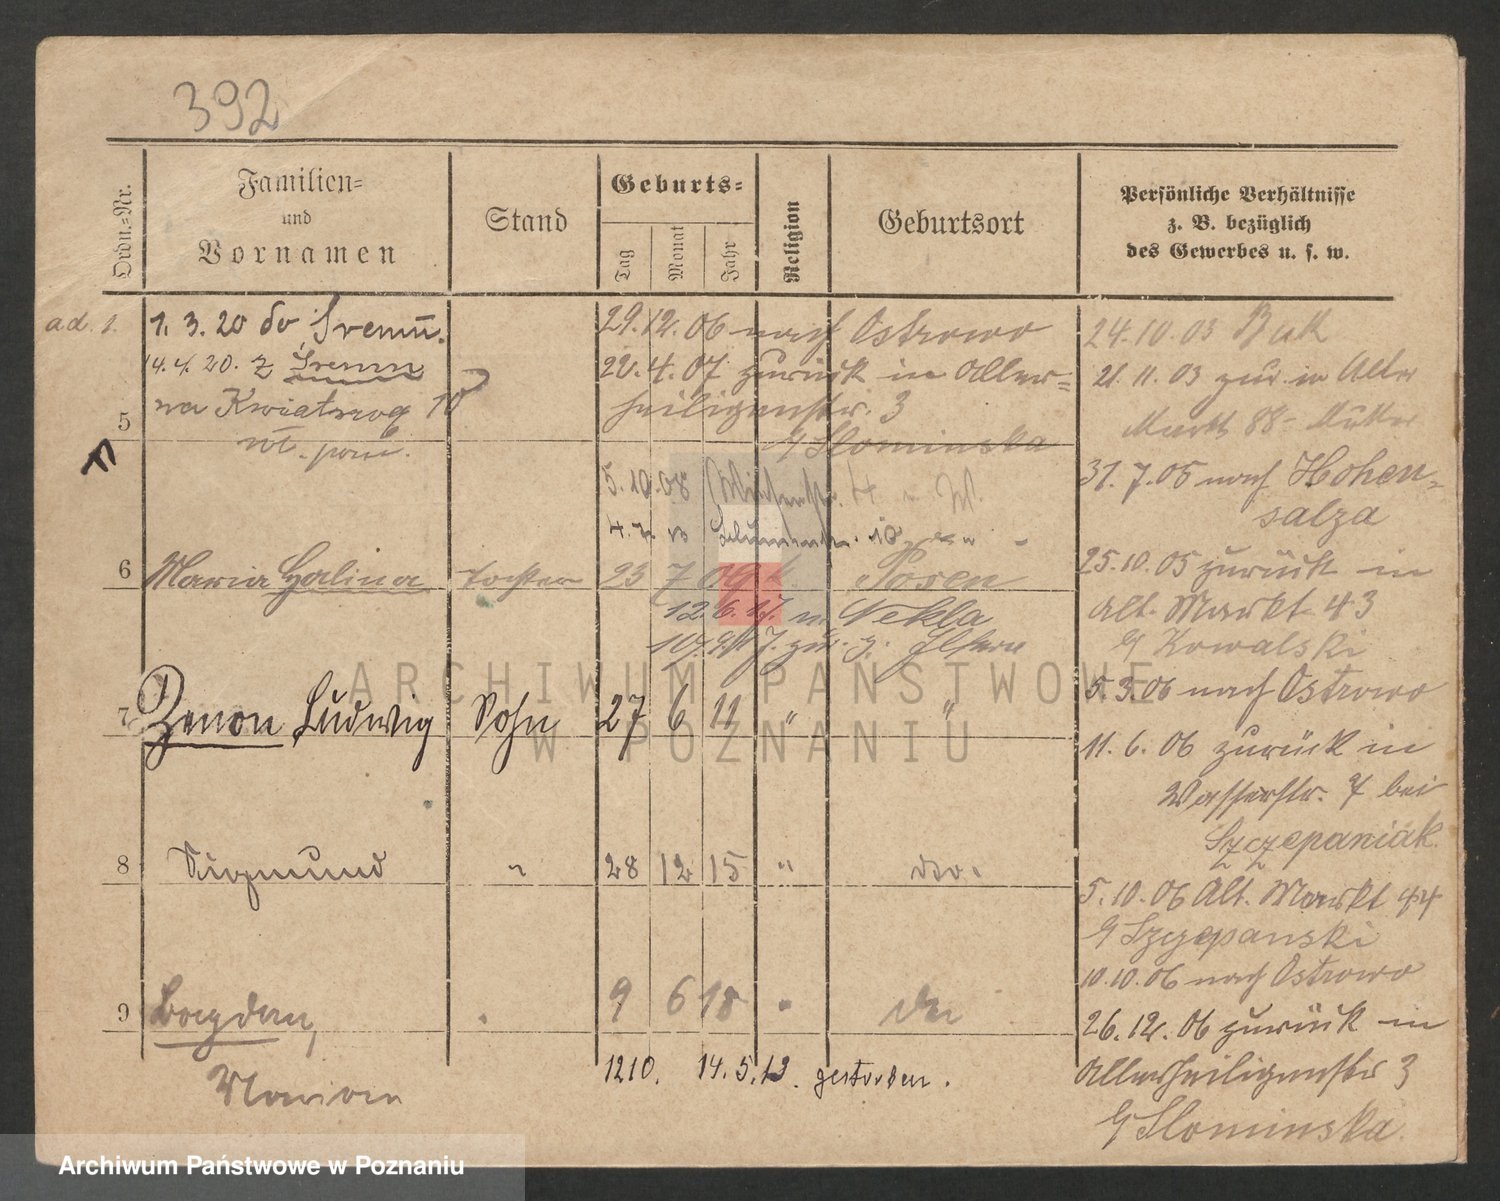 392
Ordn.-Nr.
Familien-
und
Vornamen
Stand
Geburts-
Tag
Monat
Jahr
Religion
Geburtsort
Persönliche Verhältnisse
z. B. bezüglich
des Gewerbes u. s. w.
ad. 1.
1. 3. 20 do Śremu.
14. 4. 20. z Śremu
na Kwiatową 10
5
29. 12. 06 nach Ostrowo
22. 4. 07 zurück in Aller-
heiligenstr. 3
b/ Slominska
5. 10. 08
4. 7.
6 Maria Halina Tochter 23 7 09 k. Posen
12. 6. 17. n. Nekla
10. 9. 17. zur. z. Eltern
7 Zenon Ludwig Sohn 27 6 11 " "
8 Sigmund " 28 12 15 " do.
9 Bogdan, 9 6 18 "
Marian
1210. 14. 5. 13. gestorben.
24. 10. 03 Buk
21. 11. 03 zur. in Alter
Markt 88 - Mutter
31. 7. 05 nach Hohen-
salza
25. 10. 05 zurück in
Alt. Markt 43
b/ Kowalski
5. 3. 06 nach Ostrowo
11. 6. 06 zurück in
Wasserstr. 7 bei
Szczepaniak
5. 10. 06 Alt. Markt 44
b/ Szczepanski
10. 10. 06 nach Ostrowo
26. 12. 06 zurück in
Allerheiligenstr 3
b/ Slominska.
ARCHIWUM PAŃSTWOWE
W POZNANIU
Archiwum Państwowe w Poznaniu